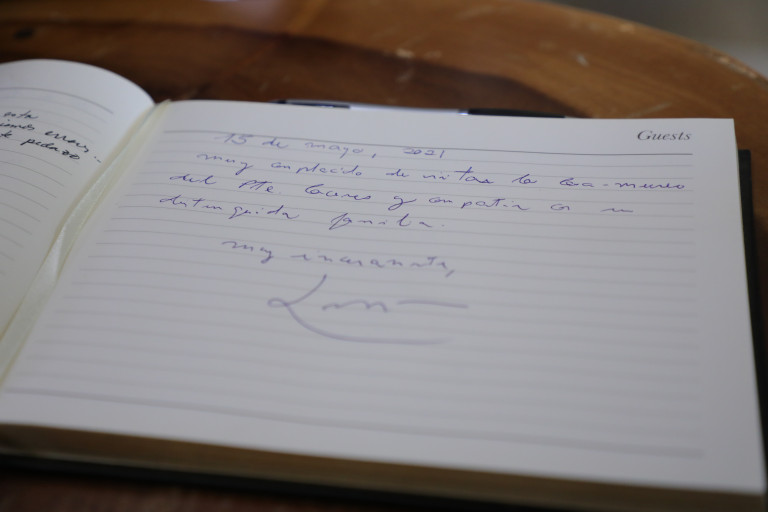 Guests
15 de mayo, 2021
muy complacido de visitar la casa-museo
del Pte. Cáceres y compartir con su
distinguida familia.
muy sinceramente,